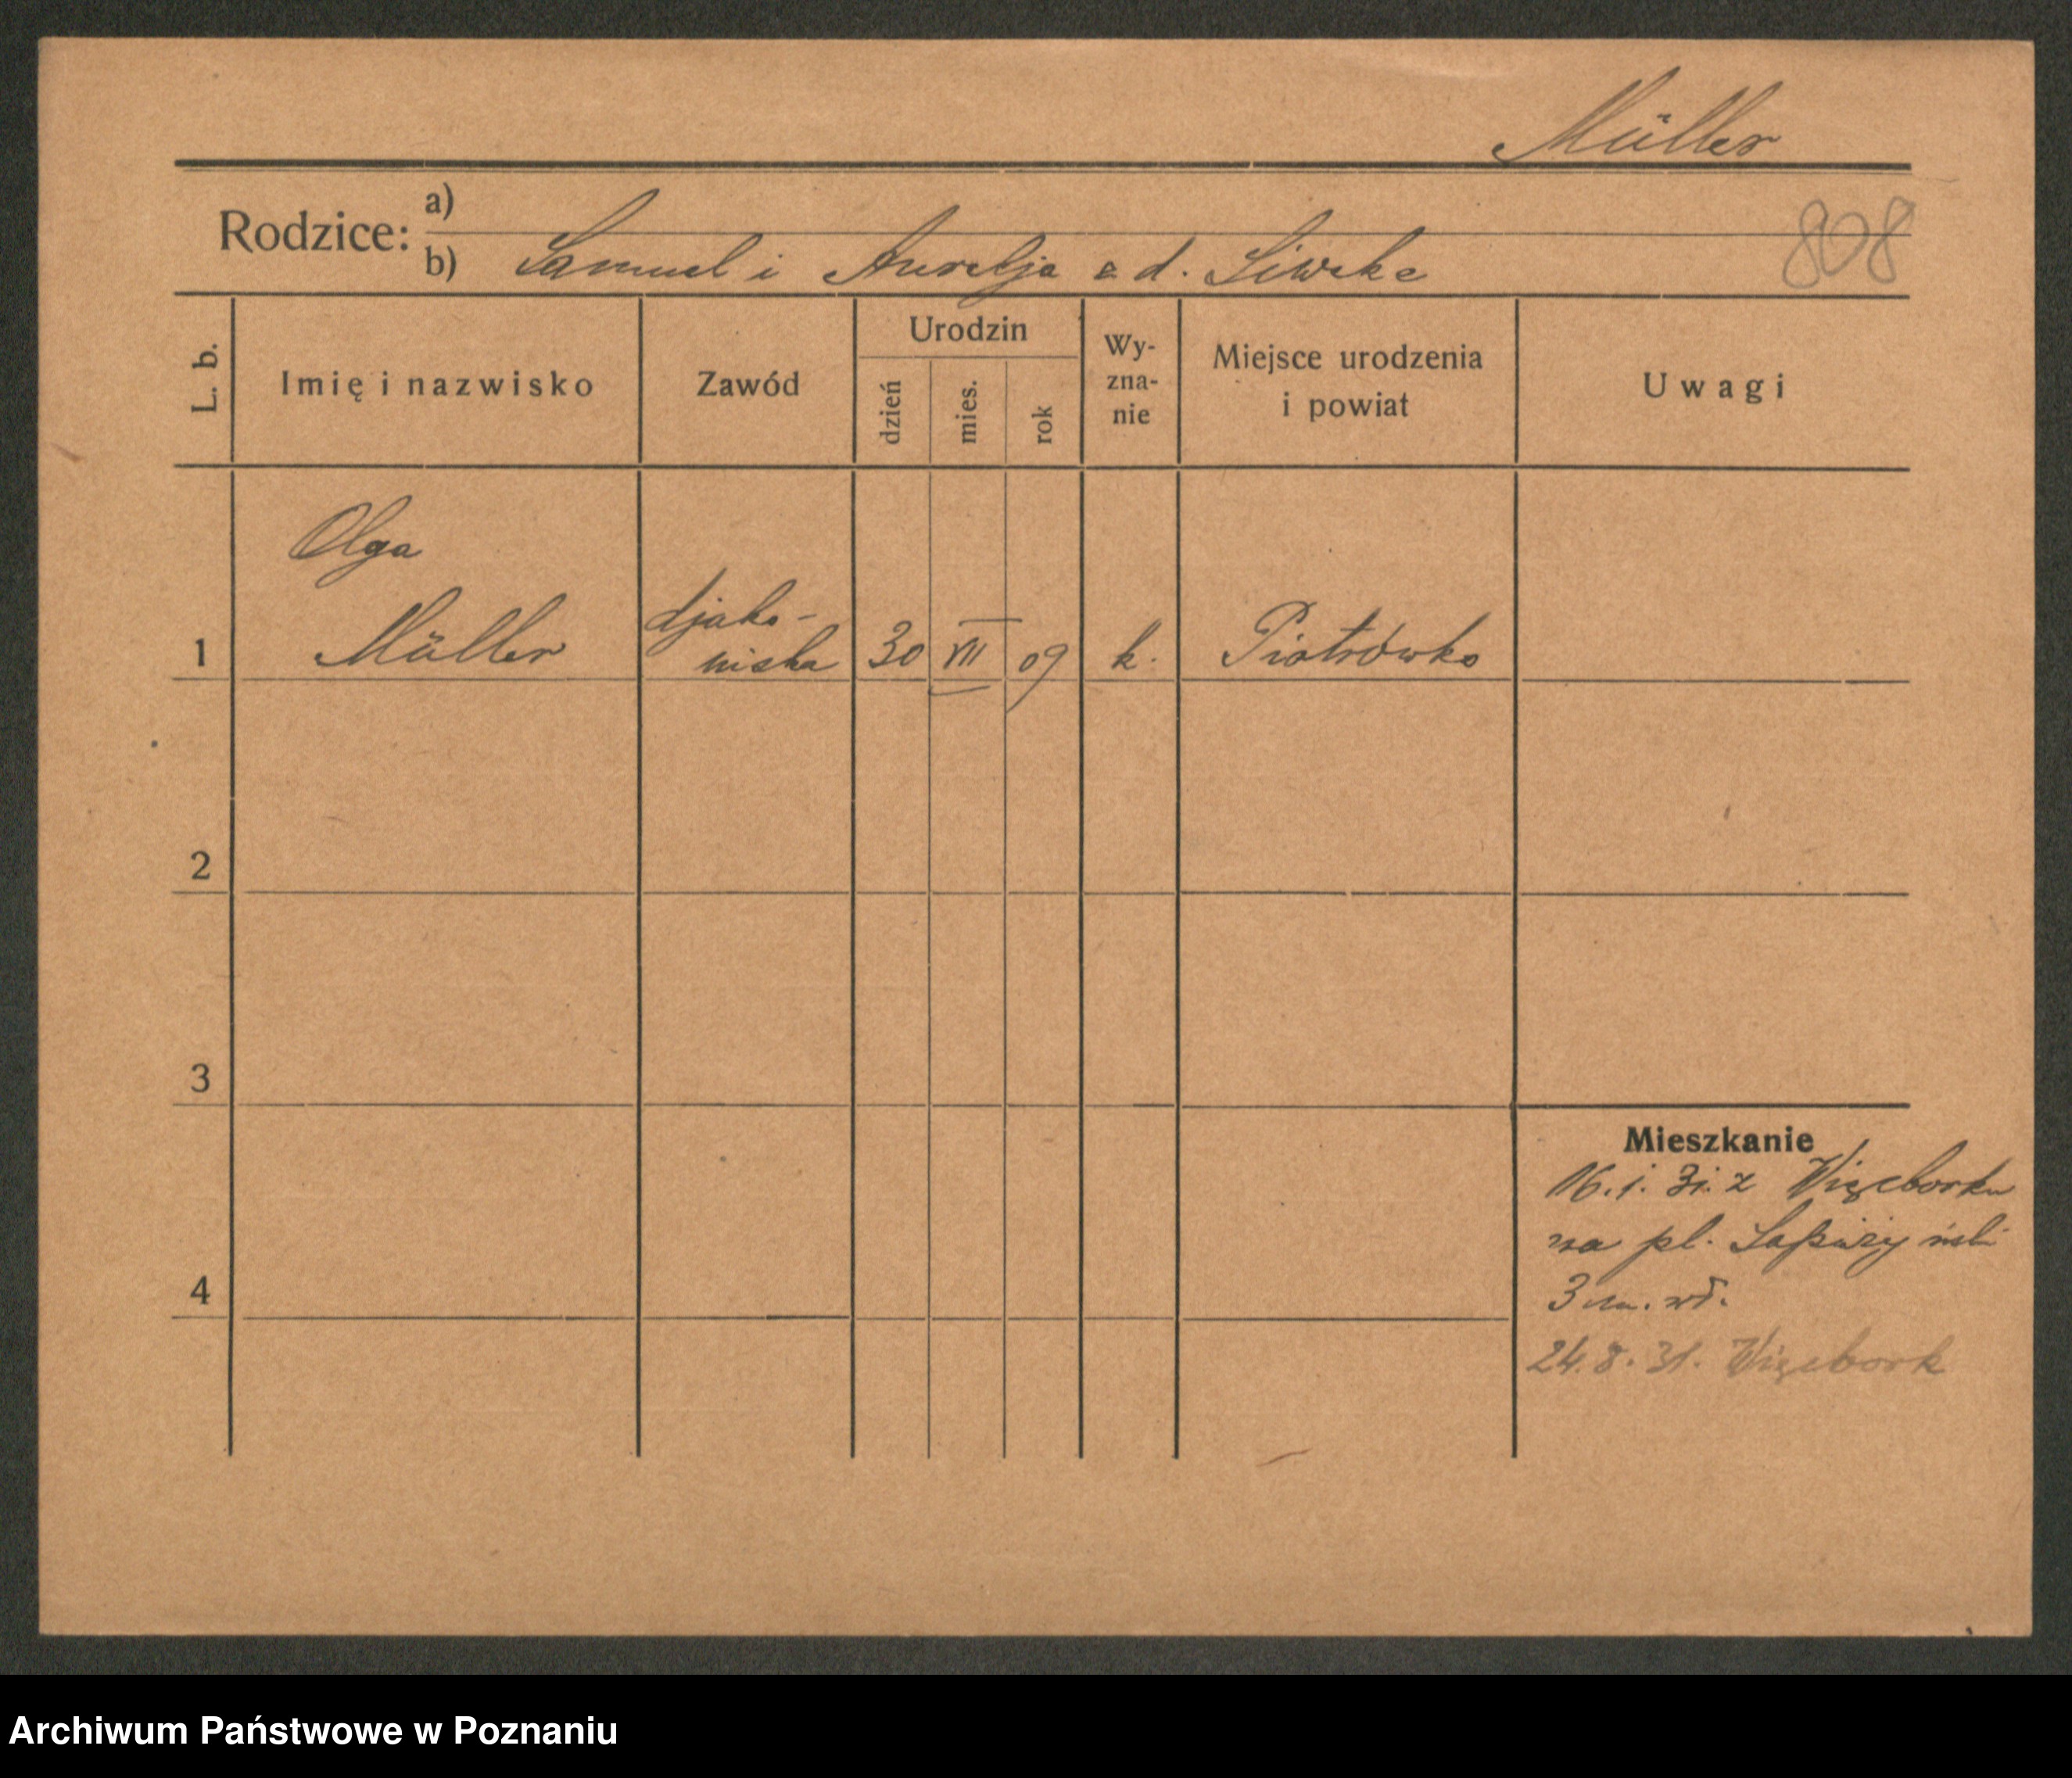 Müller
Rodzice: a)
b) Samuel i Aurelja z d. Liwske
808
L. b.
Imię i nazwisko
Zawód
Urodzin
dzień
mies.
rok
Wy-
zna-
nie
Miejsce urodzenia
i powiat
Uwagi
Olga
1 Müller
djako-
niska
30 VII 09 k. Piotrówko
2
3
4
Mieszkanie
16.1.31. z Więcborku
na pl.
3 m. wł.
24.8.31. Więcbork
Archiwum Państwowe w Poznaniu